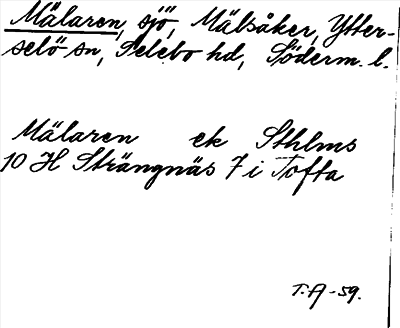 Mälaren, sjö, Mälsåker, Ytter-
selö sn, Selebo hd, Söderm. l.
Mälaren ek Sthlms
10 H Strängnäs 7 i Tofta
T. A -59.